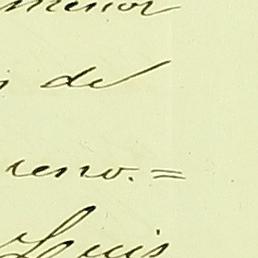 menor
de
reno.=
Luis